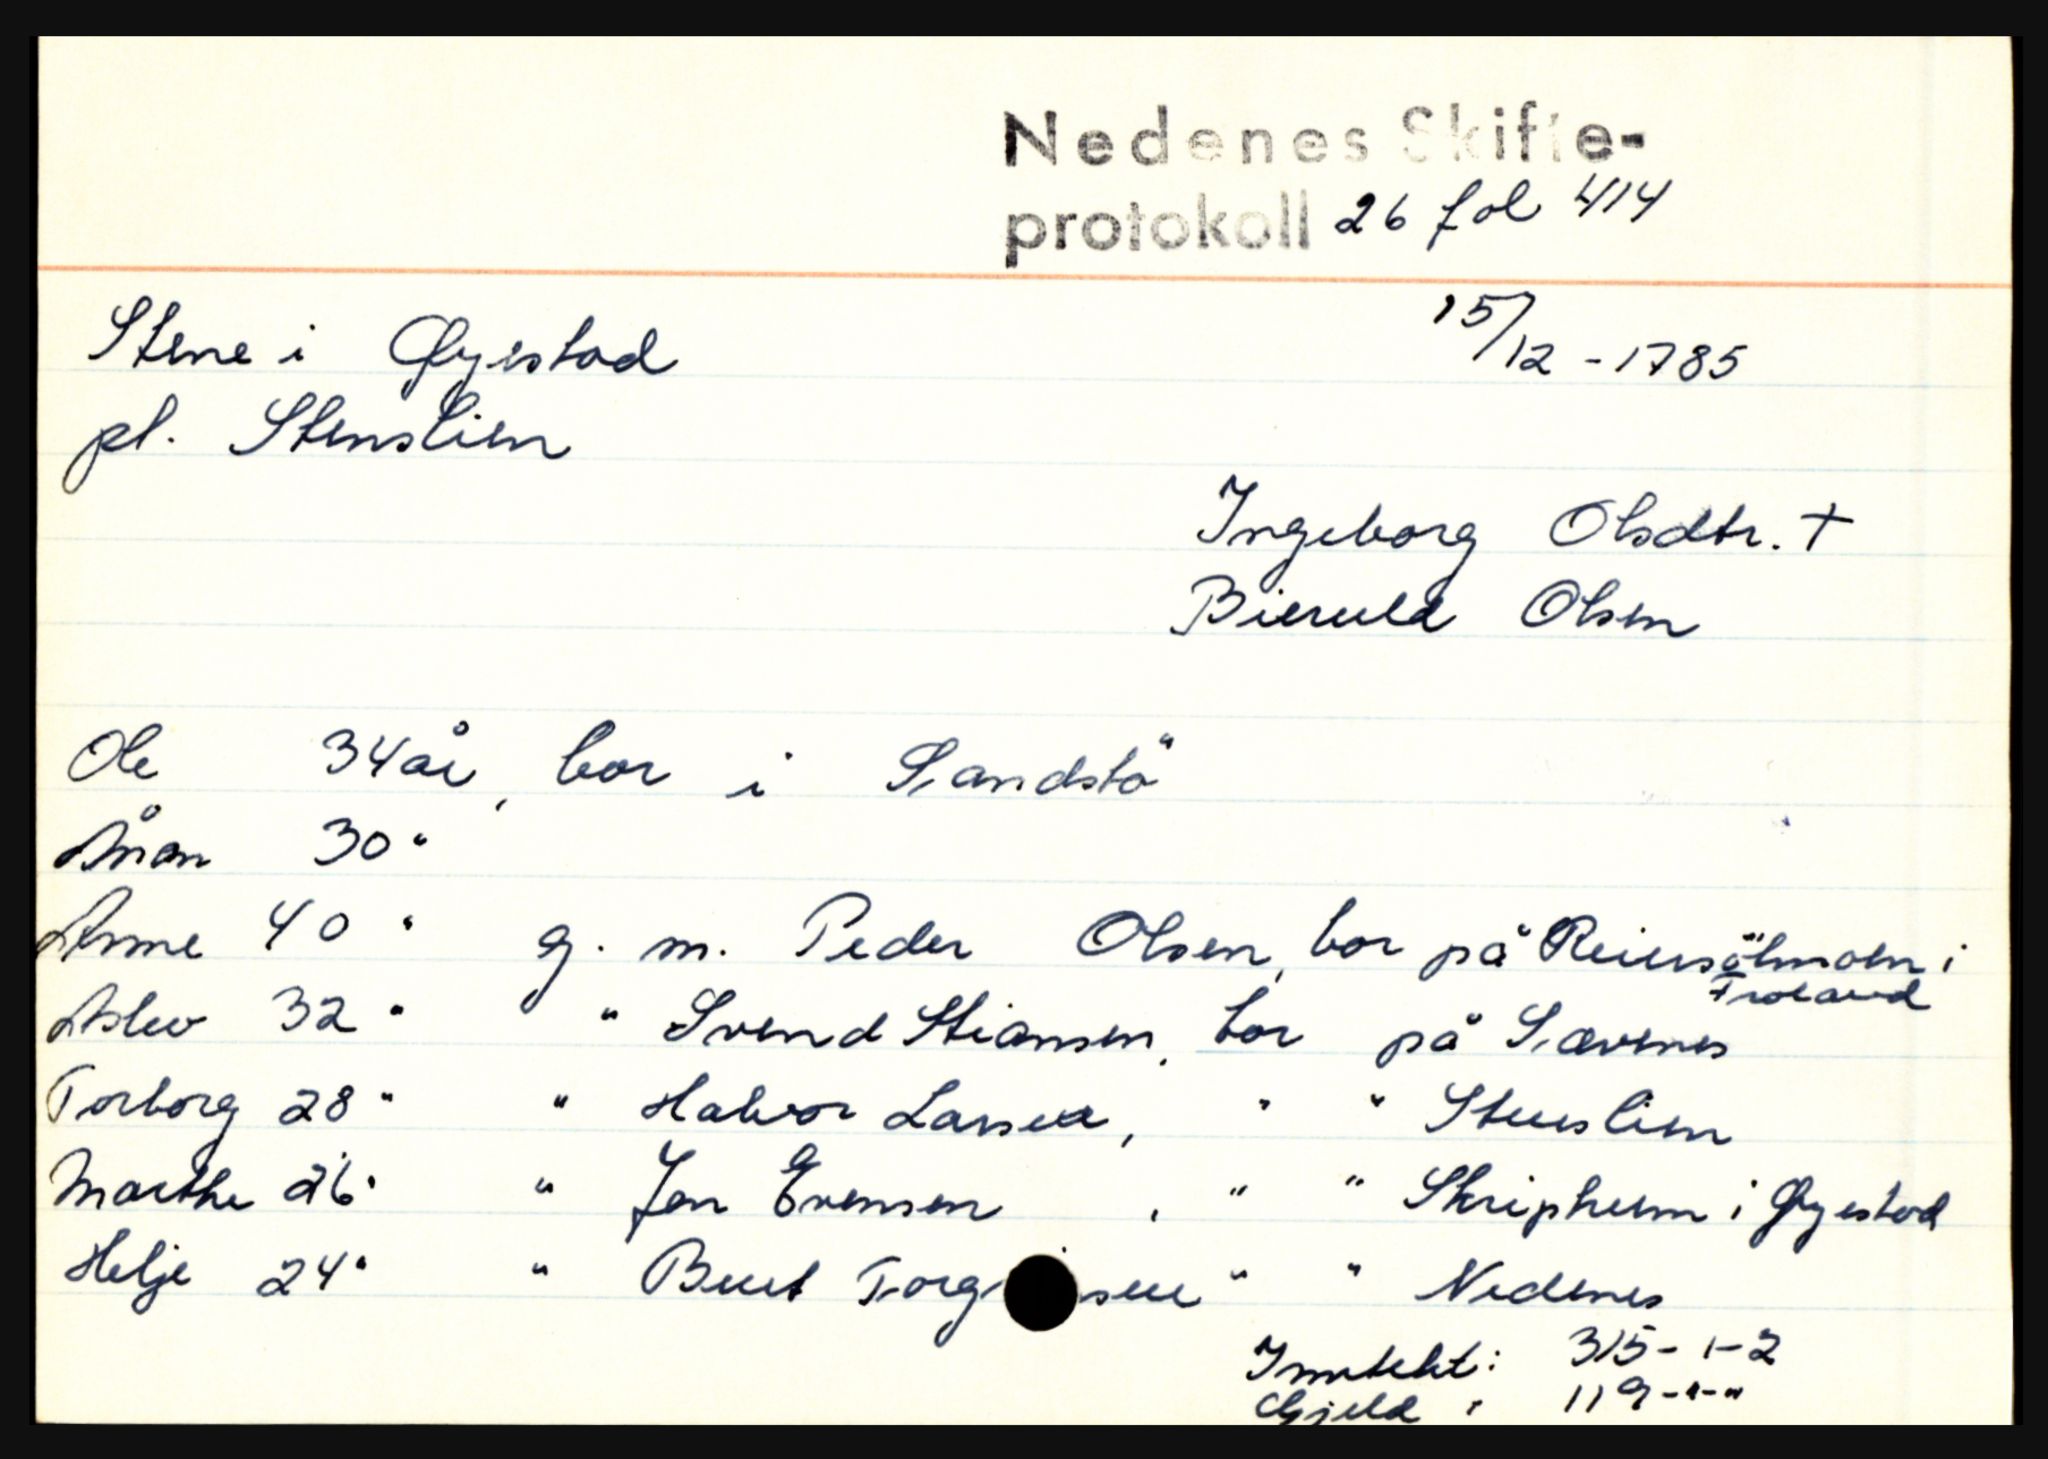 Nedenes Skifte-
protokoll 26 fol 414
Stene i Øyestad
15/12 - 1785
pl. Stenslien
Ingeborg Olsdtr. +
Bieruld Olsen
Ole 34 år, bor i Sandstö
Ånon 30 "
Anne 40 " g. m. Peder Olsen, bor på Reiersölmoen i
Froland
Aslev 32 " " Svend Stiansen, bor på Sævenes
Torborg 28 " " Halvor Larsen, " " Stenslien
Marthe 26 " " Jen Evensen, " " Skripheim i Øyestad
Helje 24 " " Bent Torg sen " " Nedenes
Inntekt: 315-1-2
Gjeld : 119-"-"